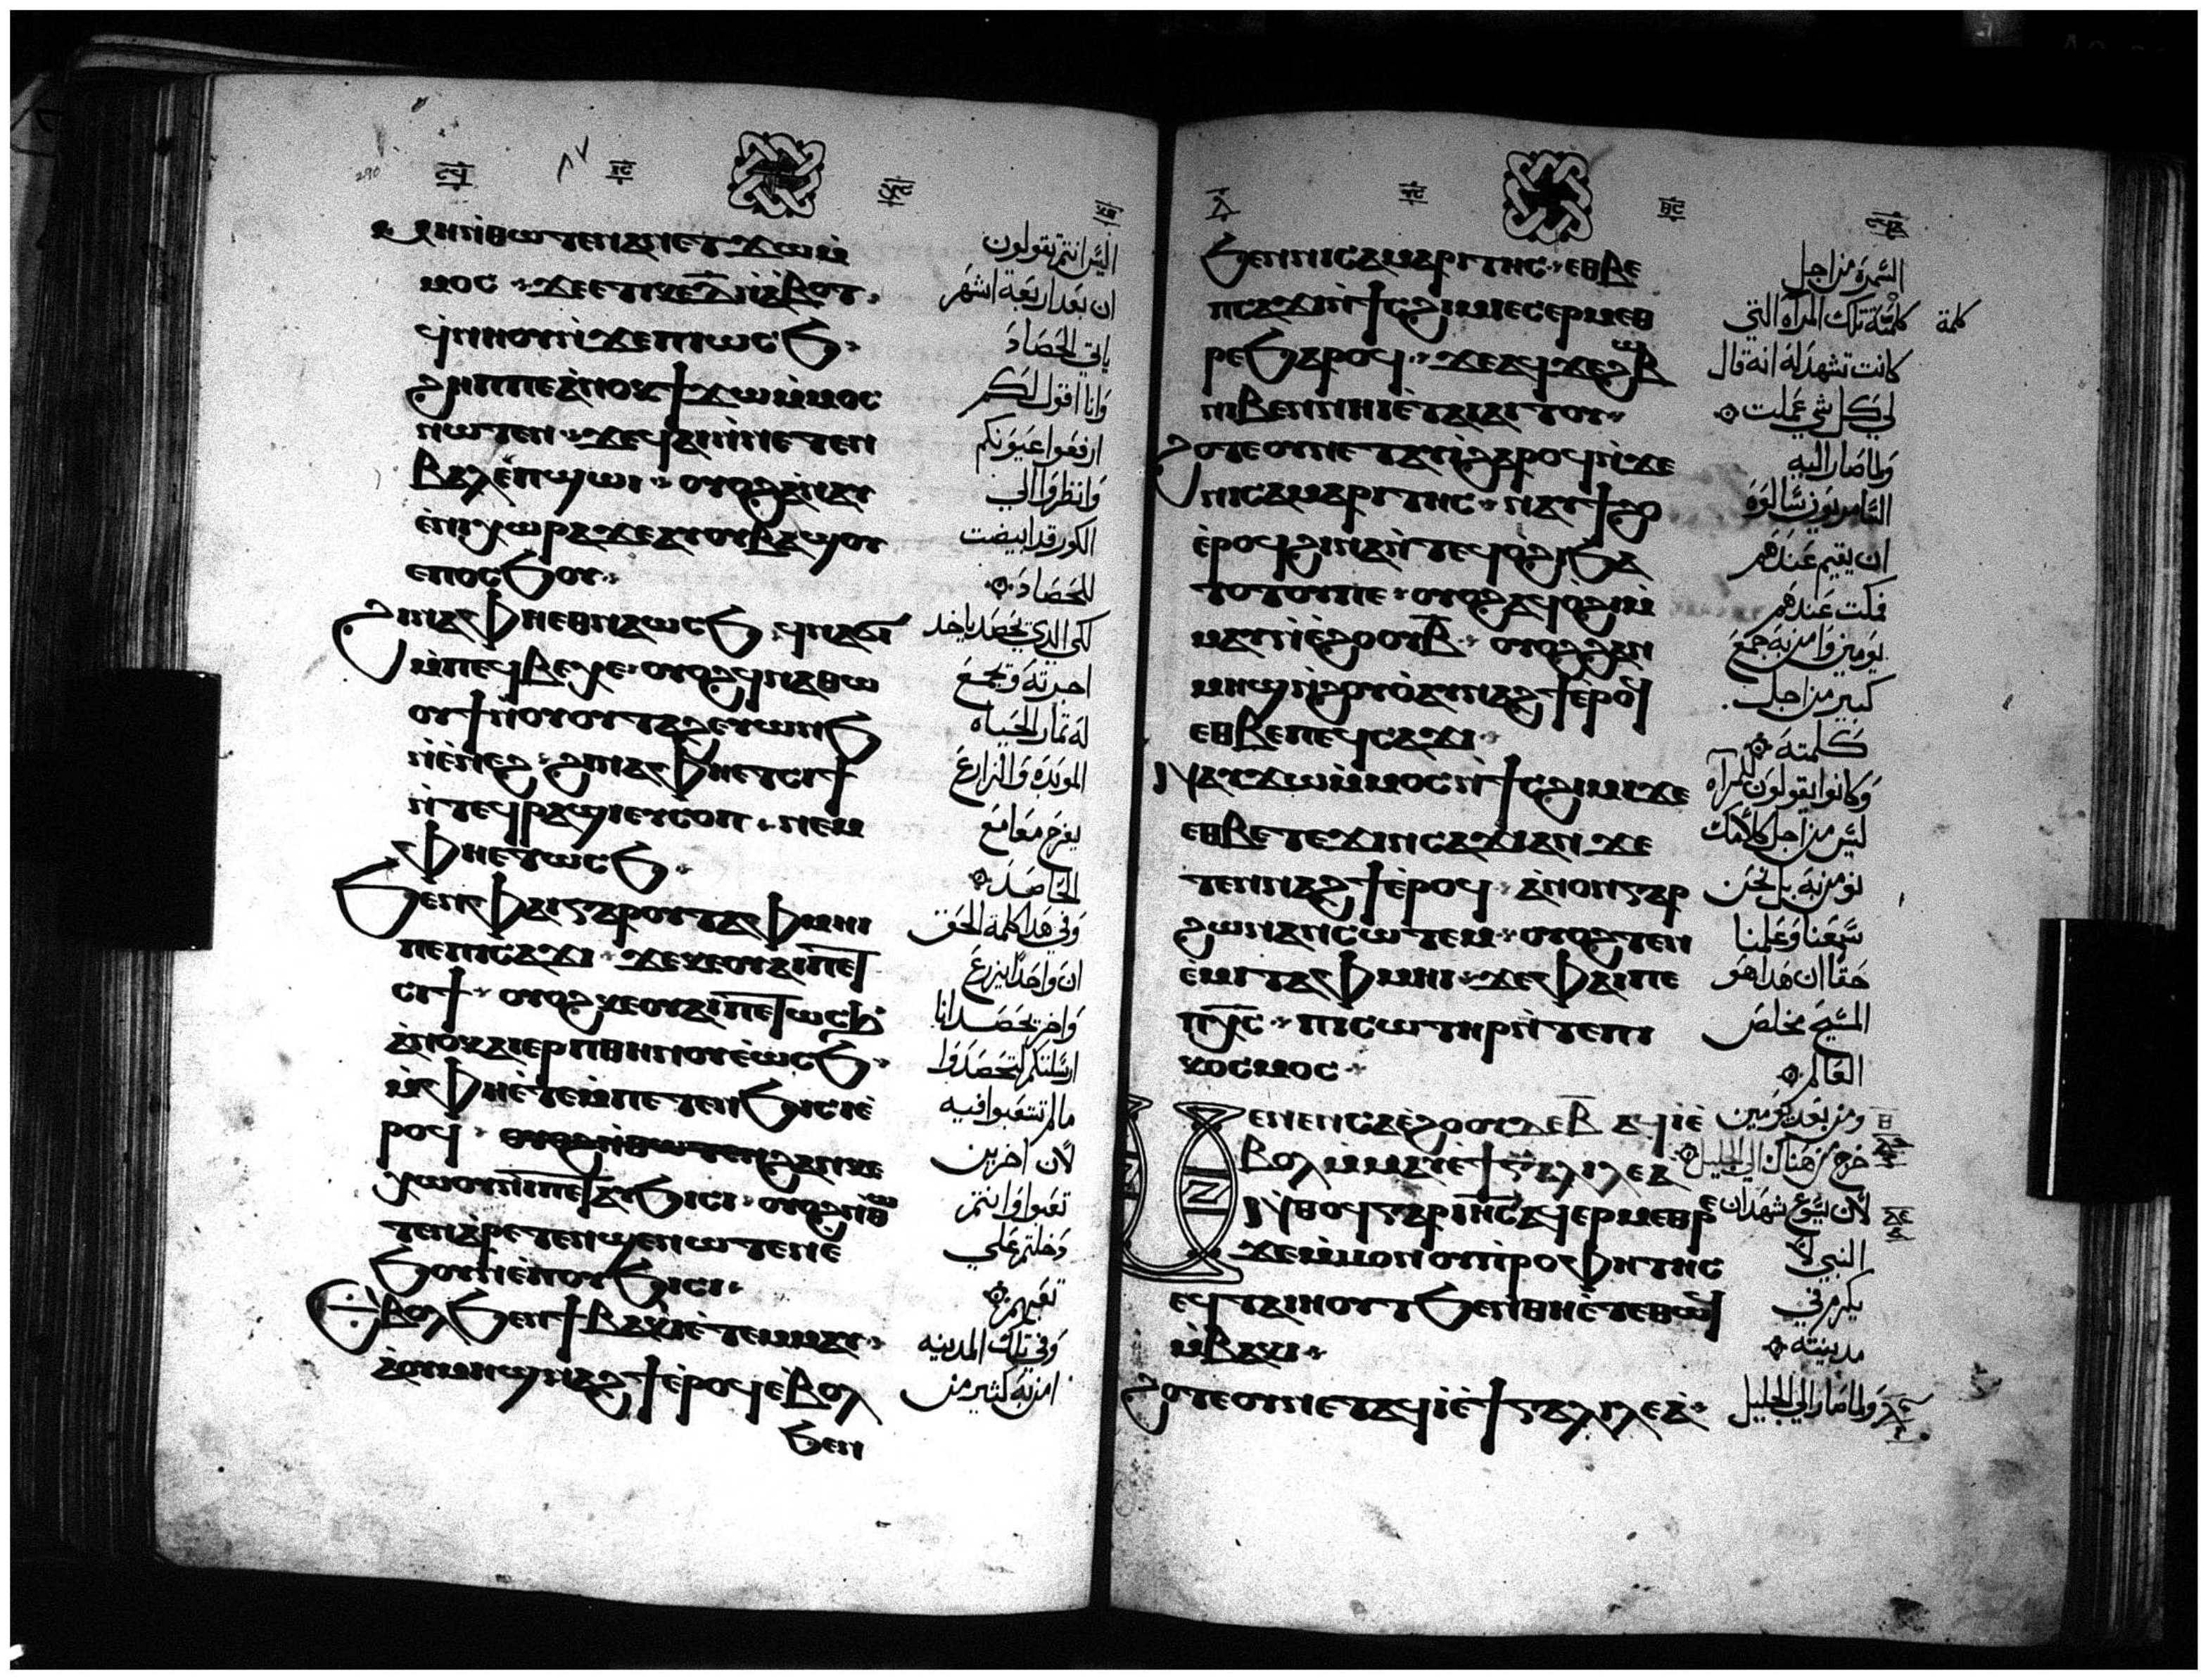 ⲙⲏ ⲛ̀ⲑⲱⲧⲉⲛ ⲁⲛ ⲉⲧϫⲱ ⲙ̀
ⲙⲟⲥ · ϫⲉ ⲉⲧⲓ ⲕⲉ ⲇ̅ ⲛ̀ⲁⲃⲟⲧ ·
ϥ̀ⲛⲏⲟⲩ ⲛ̀ϫⲉ ⲡⲓⲱⲥϧ ·
ϩⲏⲡⲡⲉ ⲁ̀ⲛⲟⲕ ϯϫⲱ ⲙ̀ⲙⲟⲥ
ⲛⲱⲧⲉⲛ · ϫⲉ ϥⲁⲓ ⲛ̀ⲛⲉⲧⲉⲛ
ⲃⲁⲗ ⲉ̀ⲡϣⲱⲓ · ⲟⲩⲟϩ ⲁ̀ⲛⲁⲩ
ⲉ̀ⲛⲓⲭⲱⲣⲁ ϫⲉ ⲁⲩⲟⲩⲃⲁϣⲟⲩ
ⲉⲡⲟⲥϧⲟⲩ ·
ϩⲓⲛⲁ ⲫⲏⲉⲑⲛⲁⲱⲥϧ ϥⲛⲁϭⲓ
ⲙ̀ⲡⲉϥⲃⲉⲭⲉ · ⲟⲩⲟϩ ϥⲛⲁⲑⲱ
ⲟⲩϯ ⲛ̀ⲟⲩⲟⲩⲧⲁϩ ⲉⲩⲱⲛϧ
ⲛ̀ⲉ̀ⲛⲉϩ · ϩⲓⲛⲁ ⲫⲏⲉⲧⲥⲓϯ
ⲛ̀ⲧⲉϥⲣⲁϣⲓ ⲉⲩⲥⲟⲡ · ⲛⲉⲙ
ⲫⲏⲉⲧⲱⲥϧ ·
ϧⲉⲛ ⲫⲁⲓ ⲅⲁⲣ ⲟⲩⲧⲁⲫⲙⲏⲓ
ⲡⲉ ⲡⲓⲥⲁϫⲓ · ϫⲉ ⲕⲉⲟⲩⲁⲓ ⲡⲉⲧ
ⲥⲓϯ · ⲟⲩⲟϩ ⲕⲉⲟⲩⲁⲓ ⲡⲉⲧⲱⲥϧ
ⲁ̀ⲛⲟⲕ ⲁⲓⲉⲣⲡ ⲑⲏⲛⲟⲩ ⲉ̀ⲱⲥϧ ·
ⲙ̀ⲫⲏⲉ̀ⲧⲉ ⲙ̀ⲡⲉⲧⲉⲛϧⲓⲥⲓ ⲉ̀
ⲣⲟϥ · ⲟⲩⲟϩ ⲛ̀ⲑⲱⲧⲉⲛ ϩⲁⲛⲕⲉ
ⲭⲱⲟⲩⲛⲓ ⲡⲉⲧⲁⲩϧⲓⲥⲓ · ⲟⲩⲟϩ ⲛ̀ⲑⲱ
ⲧⲉⲛ ⲁ̀ⲣⲉⲧⲉⲛϣⲉⲛⲱⲧⲉⲛ ⲉ̀
ϧⲟⲩⲛ ⲉ̀ⲡⲟⲩϧⲓⲥⲓ ·
ⲉ̀ⲃⲟⲗ ϧⲉⲛ ϯⲃⲁⲕⲓ ⲉ̀ⲧⲉⲙⲙⲁⲩ ·
ⲁ̀ⲟⲩⲙⲏϣ ⲛⲁϩϯ ⲉ̀ⲣⲟϥ ⲉ̀ⲃⲟⲗ
ϧⲉⲛ
اليس انتم تقولون
ان بعد اربعة اشهر
ياتي الحصاد
وانا اقول لكم
ارفعوا عيونكم
وانظروا الي
الكور قد ابيضت
للحصاد
لكي الذي يحصد ياخد
اجرته ويجمع
له ثمار الحياه
الموبدة والزارع
يفرح معا مع
الحاصد
وفي هدا كلمة الحق
ان واحدا يزرع
واخر يحصد انا
ارسلتكم لتحصدوا
ما لم تتعبوا فيه
لان اخرين
تعبوا وانتم
دخلتم علي
تعبهم
وفي تلك المدينه
امن به كثير من
ϧⲉⲛ ⲛⲓⲥⲁⲙⲁⲣⲓⲧⲏⲥ · ⲉⲑⲃⲉ
ⲡⲥⲁϫⲓ ⲛ̀ϯⲥϩⲓⲙⲓ ⲉⲥⲉⲣⲙⲉⲑ
ⲣⲉ ϧⲁⲣⲟϥ · ϫⲉ ⲁϥϫⲉ ϩⲱⲃ
ⲛⲓⲃⲉⲛ ⲛⲏⲓ ⲉ̀ⲧⲁⲓⲁⲓⲧⲟⲩ ·
ϩⲟⲧⲉ ⲟⲩⲛ ⲉⲧⲁⲩⲓ̀ ϩⲁⲣⲟϥ ⲛ̀ϫⲉ
ⲛⲓⲥⲁⲙⲁⲣⲓⲧⲏⲥ · ⲛⲁⲩϯϩⲟ
ⲉ̀ⲣⲟϥ ϩⲓⲛⲁ ⲛ̀ⲧⲉϥⲟ̀ϩⲓ ϧⲁ
ⲧⲟⲧⲟⲩ ⲡⲉ · ⲟⲩⲟϩ ⲁϥⲟ̀ϩⲓ ⲙ̀
ⲙⲁⲩ ⲛ̀ⲉ̀ϩⲟⲟⲩ ⲃ̅ · ⲟⲩⲟϩ ϩⲁⲛ
ⲙⲏϣ ⲛ̀ϩⲟⲩⲟ̀ ⲁⲩⲛⲁϩϯ ⲉ̀ⲣⲟϥ
ⲉⲑⲃⲉ ⲡⲉϥⲥⲁϫⲓ ·
ⲛⲁⲩϫⲱ ⲙ̀ⲙⲟⲥ ⲛ̀ϯⲥϩⲓⲙⲓ ϫⲉ
ⲉⲑⲃⲉ ⲧⲉϫⲓⲛⲥⲁϫⲓ ⲁⲛ ϫⲉ
ⲧⲉⲛⲛⲁϩϯ ⲉ̀ⲣⲟϥ · ⲁ̀ⲛⲟⲛ ⲅⲁⲣ
ϩⲱⲛ ⲁⲛⲥⲱⲧⲉⲙ · ⲟⲩⲟϩ ⲧⲉⲛ
ⲉ̀ⲙⲓ ⲧⲁⲫⲙⲏⲓ · ϫⲉ ⲫⲁⲓ ⲡⲉ
ⲡⲭ̅ⲥ̅ · ⲡⲓⲥⲱⲧⲏⲣ ⲛ̀ⲧⲉ ⲡⲓ
ⲕⲟⲥⲙⲟⲥ ·
ⲙⲉⲛⲉⲛⲥⲁ ⲉ̀ϩⲟⲟⲩ ⲇⲉ ⲃ̅ ⲁϥⲓ̀ ⲉ̀
ⲃⲟⲗ ⲙ̀ⲙⲁⲩ ⲉ̀ϯⲅⲁⲗⲓⲗⲉⲁ
ⲛ̀ⲑⲟϥ ⲅⲁⲣ ⲓⲏ̅ⲥ̅ ⲁϥⲉⲣⲙⲉⲑⲣⲉ
ϫⲉ ⲙ̀ⲙⲟⲛ ⲟⲩⲡⲣⲟⲫⲏⲧⲏⲥ
ⲉϥⲧⲁⲓⲏⲟⲩⲧ ϧⲉⲛ ⲑⲏⲉ̀ⲧⲉⲑⲱϥ
ⲙ̀ⲃⲁⲕⲓ ·
ϩⲟⲧⲉ ⲟⲩⲛ ⲉⲧⲁϥⲓ̀ ⲉ̀ϯⲅⲁⲗⲓⲗⲉⲁ ·
السمرة من اجل
كلمة تلك المراه التي
كلمة
كانت تشهد له انه قال
لي كل شي عملت
ولما صار اليه
السامريون سالوه
ان يقيم عندهم
فمكث عندهم
يومين وامن به جمع
كبير من اجل
كلمته
وكانوا يقولون للمرآه
ليس من اجل كلامك
نومن به بل نحن
سمعنا وعلمنا
حقا ان هدا هو
المسيح مخلص
العالم
ومن بعد يومين
خرج من هناك الي الجليل
لان يسوع شهد ان
النبي لا
يكرم في
مدينته
ولما صار الي الجليل